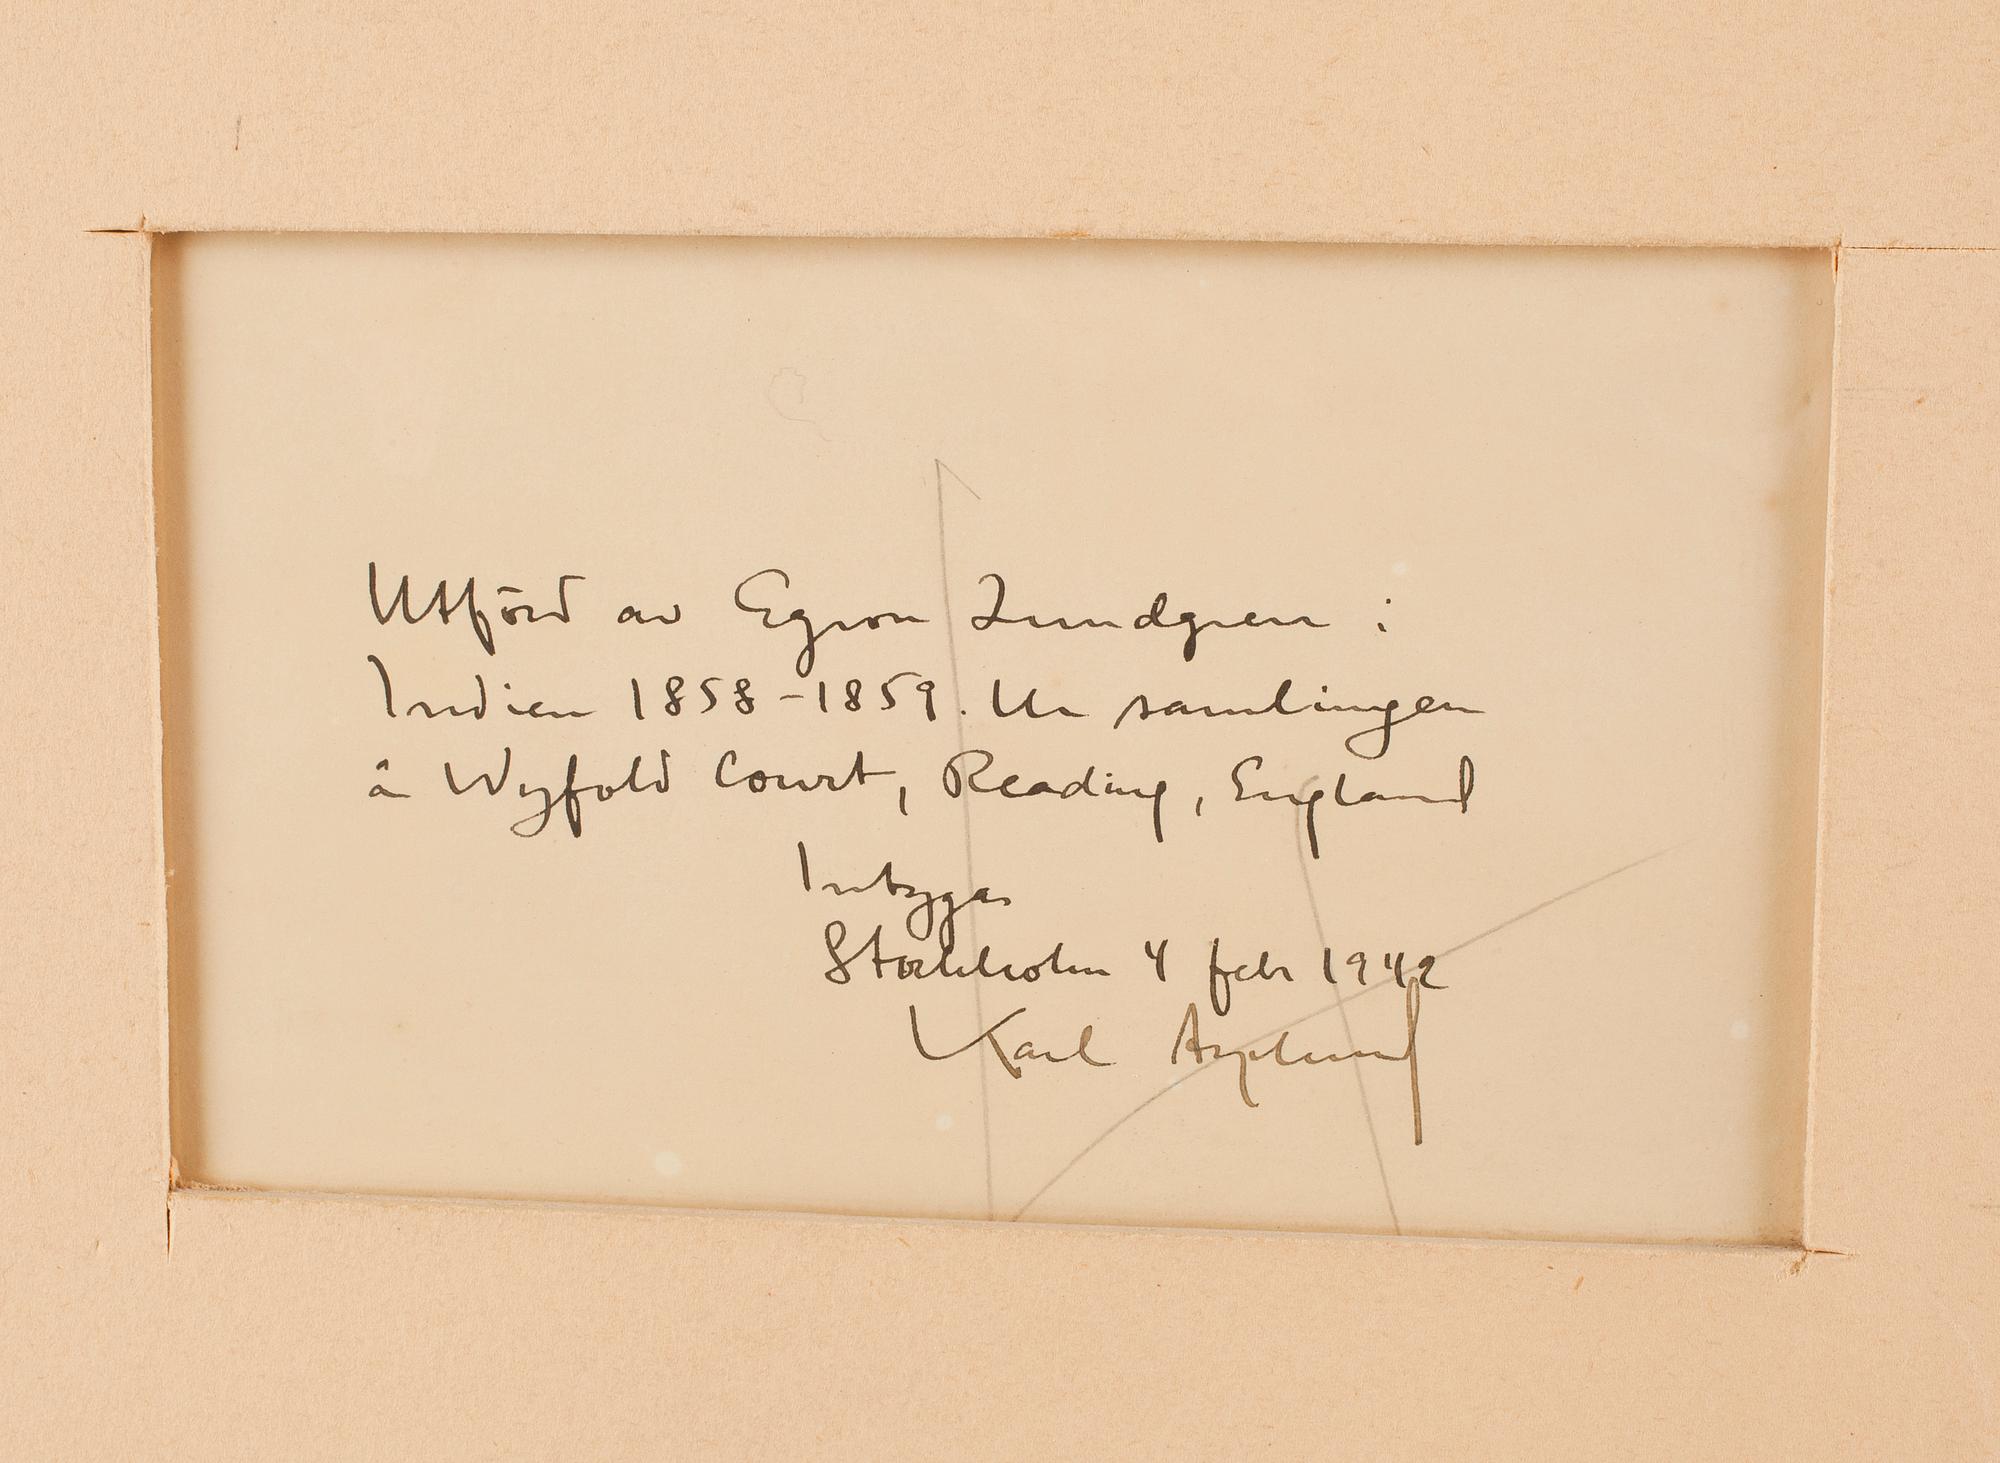 Utförd av Egron Lundgren i
Indien 1858-1859. Ur samlingen
å Wyfold Court, Reading, England
Intygas
Stockholm 4 febr 1942
Karl Asplund